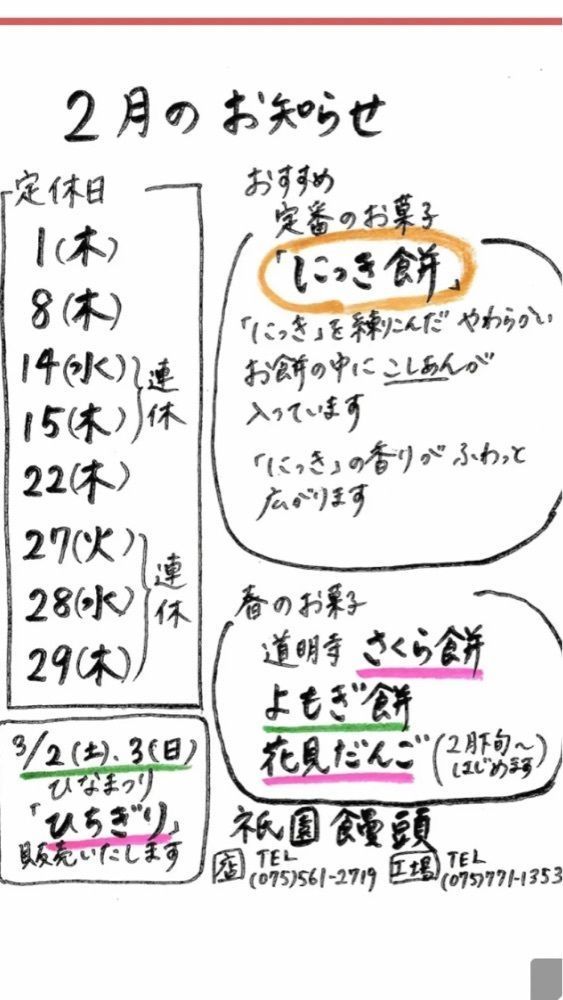 2月のお知らせ
定休日
1(木)
8(木)
14(水)
15(木)
連休
22(木)
27(火)
28(水)
29(木)
連休
3/2(土)、3(日)
ひなまつり
「ひちぎり」
販売いたします
おすすめ
定番のお菓子
「にっき餅」
「にっき」を練りこんだ やわらかい
お餅の中に こしあんが
入っています
「にっき」の香りが ふわっと
広がります
春のお菓子
道明寺 さくら餅
よもぎ餅
花見だんご(2月下旬〜
はじめます)
祇園饅頭
店 TEL
(075)561-2719
工場 TEL
(075)771-1353